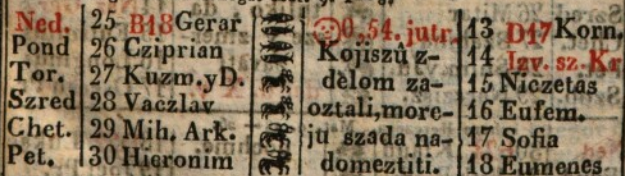 Ned. 25 B18 Gerar 0,54. jutr. 13 D17 Korn.
Pond 26 Cziprian Kojiszú z- 14 Izv. sz. Kr
Tor. 27 Kuzm. y D. délom za- 15 Niczetas
Szred 28 Vaczlav oztali, more- 16 Eufem.
Chet. 29 Mih. Ark. ju szada na- 17 Sofia
Pet. 30 Hieronim domeztiti. 18 Eumenes